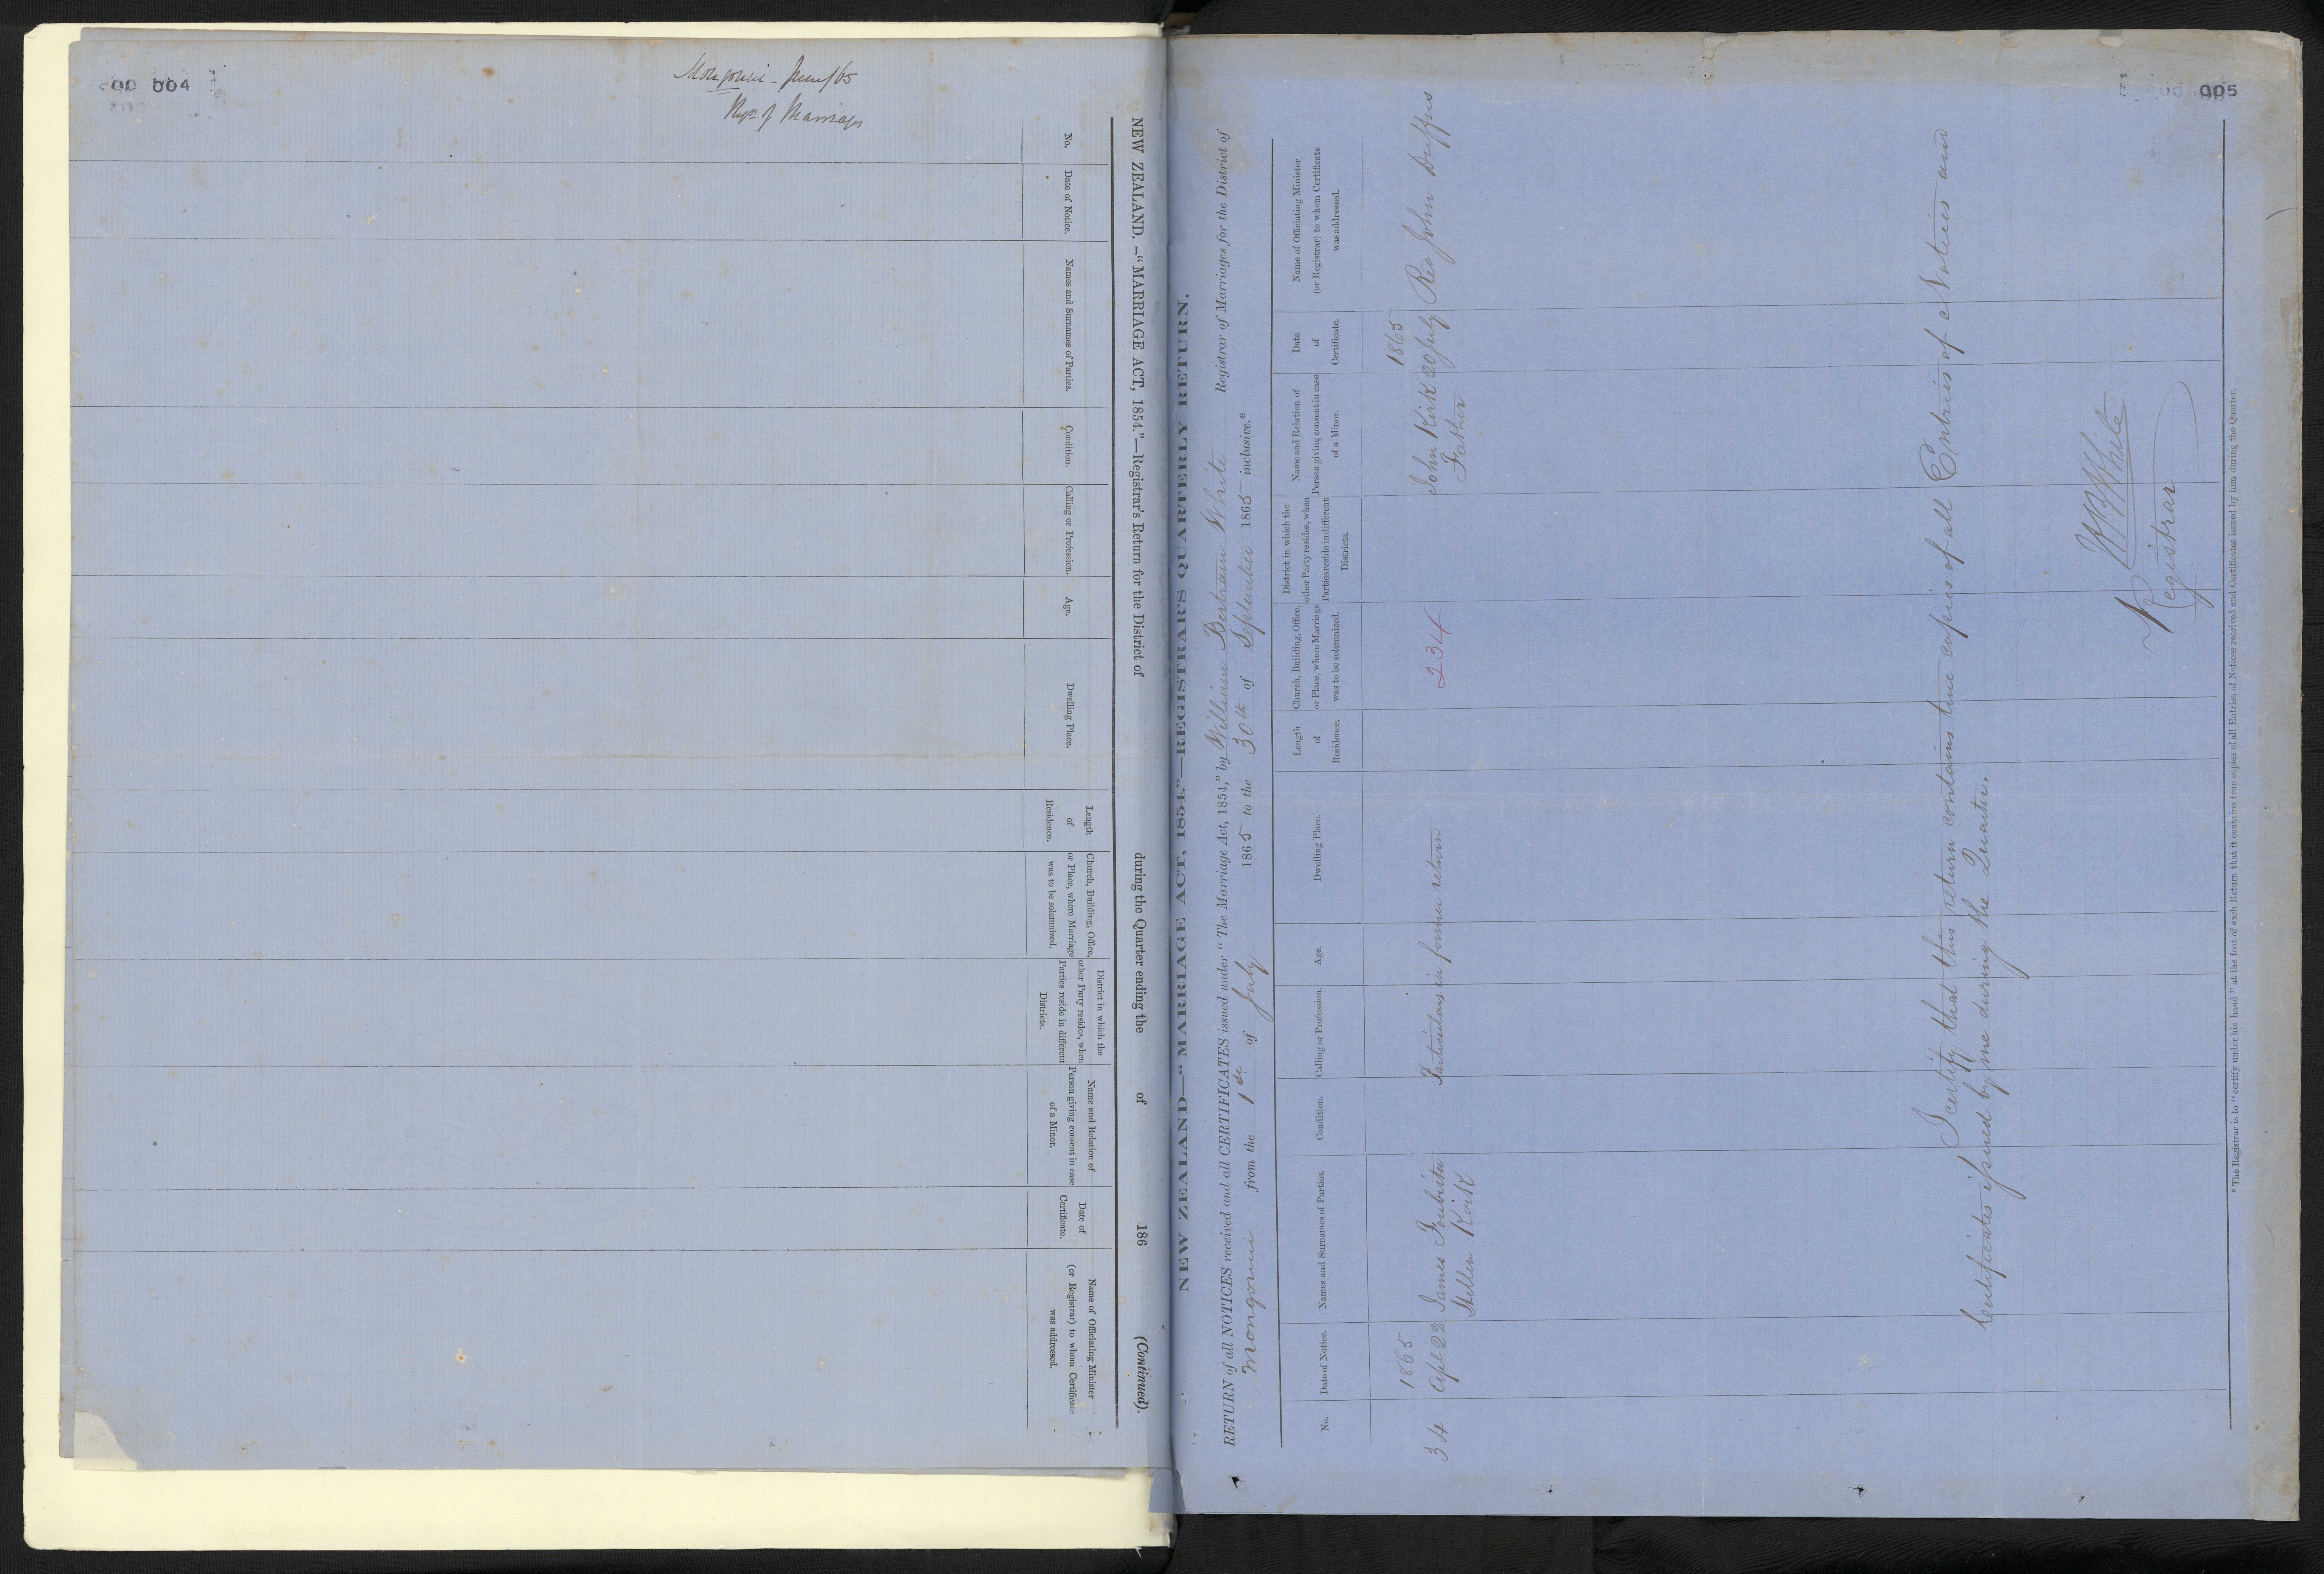 004
Mongonui - June/65
Regr. of Marriages
NEW ZEALAND.—"MARRIAGE ACT, 1854."—Registrar's Return for the District of during the Quarter ending the of 186 (Continued).
No.
Date of Notice.
Names and Surnames of Parties.
Condition.
Calling or Profession.
Age.
Dwelling Place.
Length
of
Residence.
Church, Building, Office,
or Place, where Marriage
was to be solemnized.
District in which the
other Party resides, when
Parties reside in different
Districts.
Name and Relation of
Person giving consent in case
of a Minor.
Date of
Certificate.
Name of Officiating Minister
(or Registrar) to whom Certificate
was addressed.
005
NEW ZEALAND—"MARRIAGE ACT, 1854."—REGISTRAR'S QUARTERLY RETURN.
RETURN of all NOTICES received and all CERTIFICATES issued under "The Marriage Act, 1854," by William Bertram White Registrar of Marriages for the District of
Mongonui from the 1st of July 1865 to the 30th of September 1865 inclusive.*
No.
Date of Notice.
Names and Surnames of Parties.
Condition.
Calling or Profession.
Age.
Dwelling Place.
Length
of
Residence.
Church, Building, Office,
or Place, where Marriage
was to be solemnized.
District in which the
other Party resides, when
Parties reside in different
Districts.
Name and Relation of
Person giving consent in case
of a Minor.
Date
of
Certificate.
Name of Officiating Minister
(or Registrar) to whom Certificate
was addressed.
1865 1865
34 Apl 22 James Particulars in former return 234 John Kirk 20 July Rev John Duffus
Hellen Kirk Father
I certify that this return contains true copies of all Entries of Notices and
Certificates issued by me during the Quarter.
W B White
Registrar
*The Registrar is to "certify under his hand" at the foot of each Return that it contains true copies of all Entries of Notices received and Certificates issued by him during the Quarter.